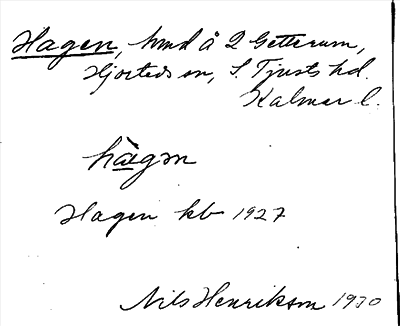 Hagen, hmd å 2 Getterum,
Hjorteds sn, S. Tjusts hd.
Kalmar l.
hàgən
Hagen kb 1927
Nils Henrikson 1930